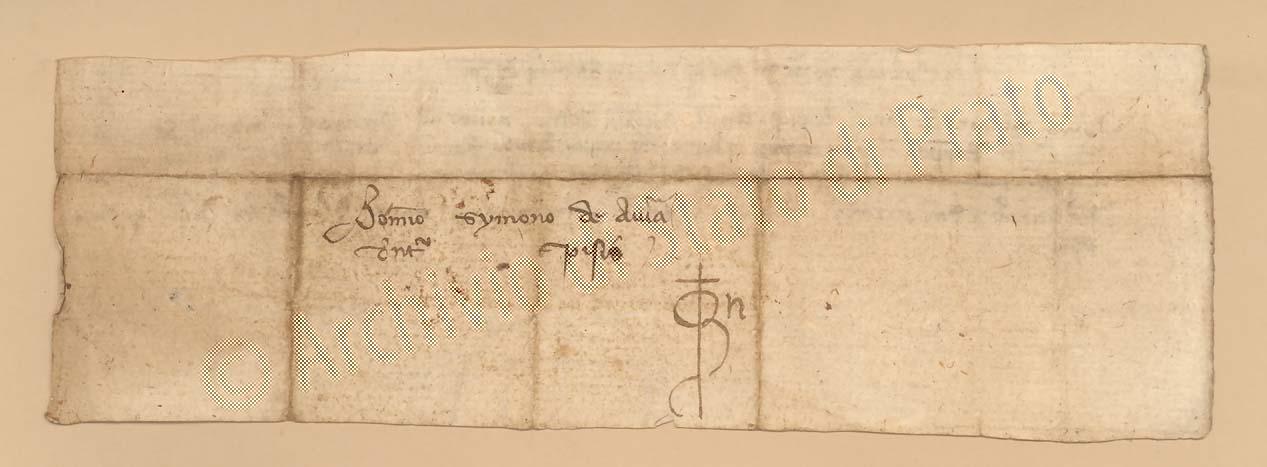 Domino Symono de Aui͞a
Dnt͞ pisis
n
© Archivio di Stato di Prato